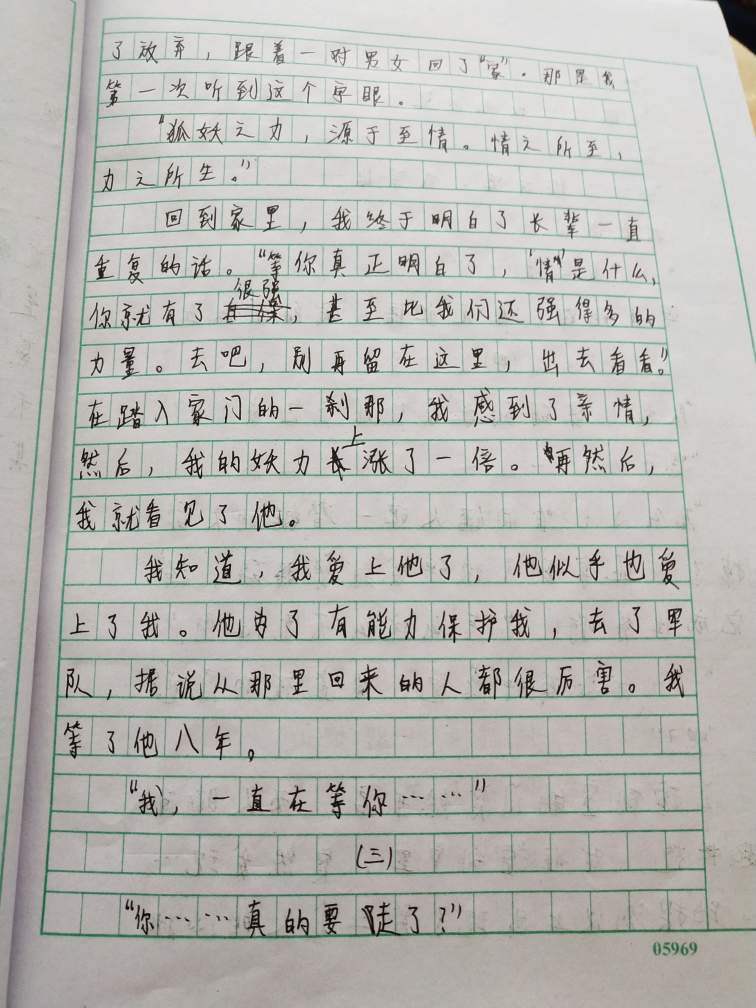 了放弃，跟着一对男女回了“家”。那是我
第一次听到这个字眼。
“狐妖之力，源于至情。情之所至，
力之所生。”
回到家里，我终于明白了长辈一直
重复的话。“等你真正明白了，‘情’是什么，
你就有了很强，甚至比我们还强得多的
力量。去吧，别再留在这里，出去看看。”
在踏入家门的一刹那，我感到了亲情，
然后，我的妖力上涨了一倍。再然后，
我就看见了他。
我知道，我爱上他了，他似乎也爱
上了我。他为了有能力保护我，去了军
队，据说从那里回来的人都很厉害。我
等了他八年。
“我，一直在等你……”
（三）
“你……真的要走了？”
05969